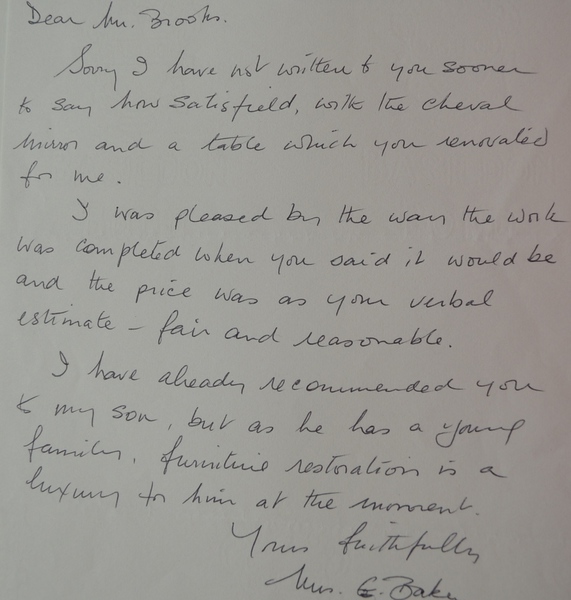 Dear Mr. Brooks.
Sorry I have not written to you sooner
to say how satisfield, with the cheval
mirror and a table which you renovated
for me.
I was pleased by the way the work
was completed when you said it would be
and the price was as your verbal
estimate - fair and reasonable.
I have already recommended you
to my son, but as he has a young
family, furniture restoration is a
luxury for him at the moment.
Yours faithfully
Mrs. E. Baker